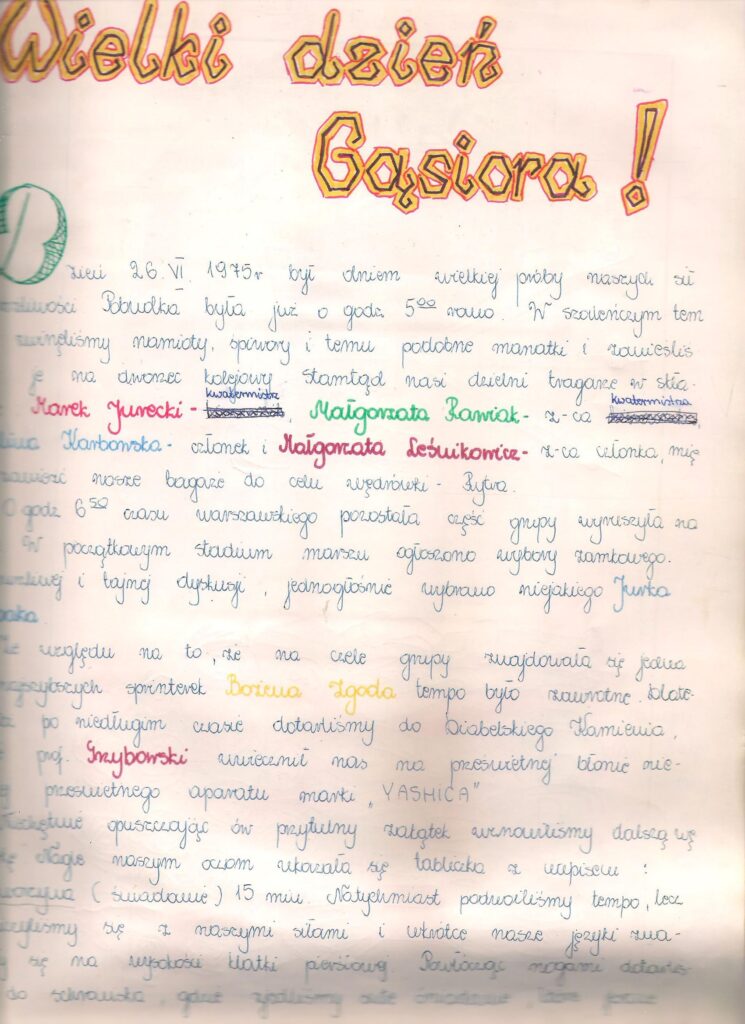 Wielki dzień
Gąsiora!
Dzień 26.VI.1975r był dniem wielkiej próby naszych sił
Pobudka była już o godz. 5⁰⁰ rano. W szaleńczym tem
zwinęliśmy namioty, śpiwory i temu podobne manatki i zanieśliś
je na dworzec kolejowy. Stamtąd nasi dzielni tragarze w skła-
kwatermistrz kwatermistrza
Marek Jurecki - , Małgorzata Rawiak - z-ca ,
Karbowska - członek i Małgorzata Leśnikowicz - z-ca członka, mię
nasze bagaże do celu wędrówki - Rytra.
O godz 6⁵⁰ czasu warszawskiego pozostała część grupy wyruszyła na
W początkowym stadium marszu ogłoszono wybory zamkowego.
i tajnej dyskusji, jednogłośnie wybrano niejakiego Jurka
Ze względu na to, że na czele grupy znajdowała się jedna
najszybszych sprinterek Bożena Zgoda tempo było zawrotne. Nate-
po niedługim czasie dotarliśmy do Diabelskiego Kamienia,
prof. Grzybowski uwiecznił nas na prześwietnej błonie nie-
prześwietnego aparatu marki „YASHICA"
Niechętnie opuszczając ów przytulny zakątek wznowiliśmy dalszą wę
Nagle naszym oczom ukazała się tabliczka z napisem :
(śniadanie) 15 min. Natychmiast podwoiliśmy tempo, lecz
się z naszymi siłami i wkrótce nasze języki zna-
się na wysokości klatki piersiowej. Powłócząc nogami dotarliś
do schroniska, gdzie zjedliśmy